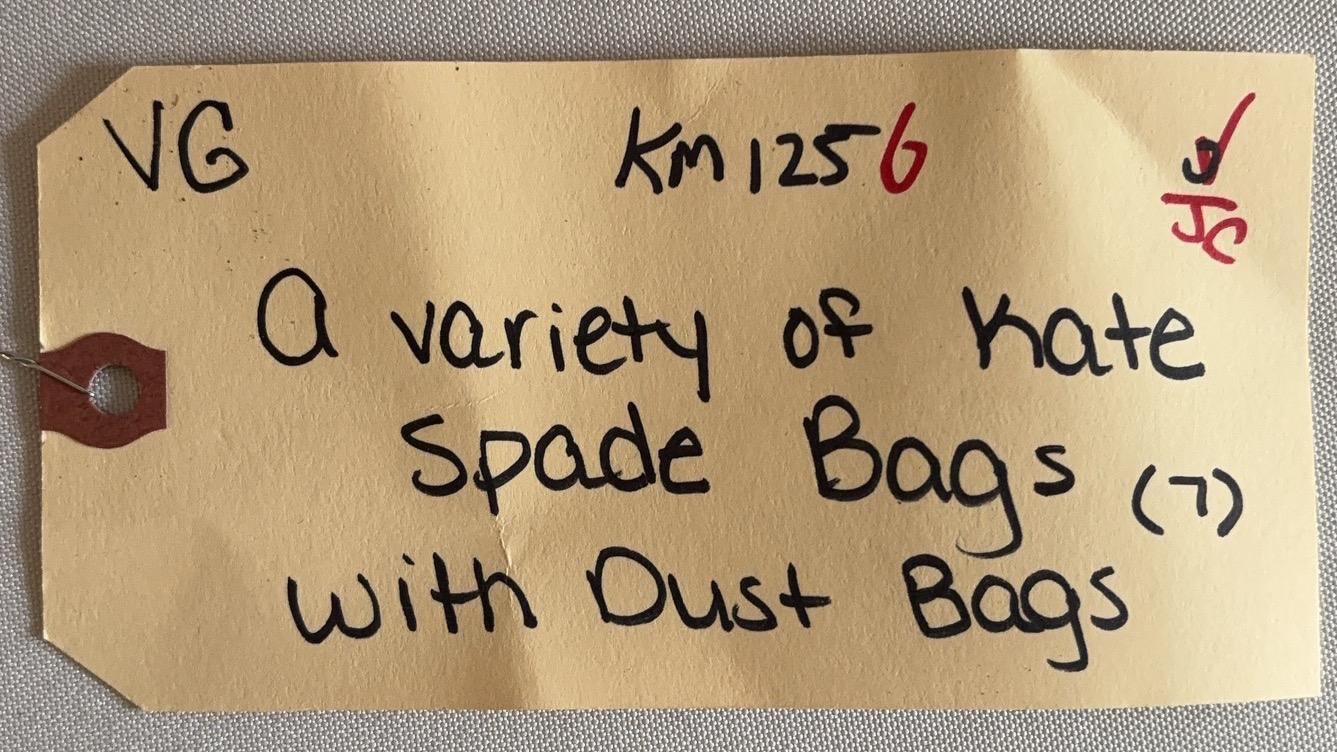 VG KM1256 J✓
JC
A variety of Kate
Spade Bags (7)
with Dust Bags